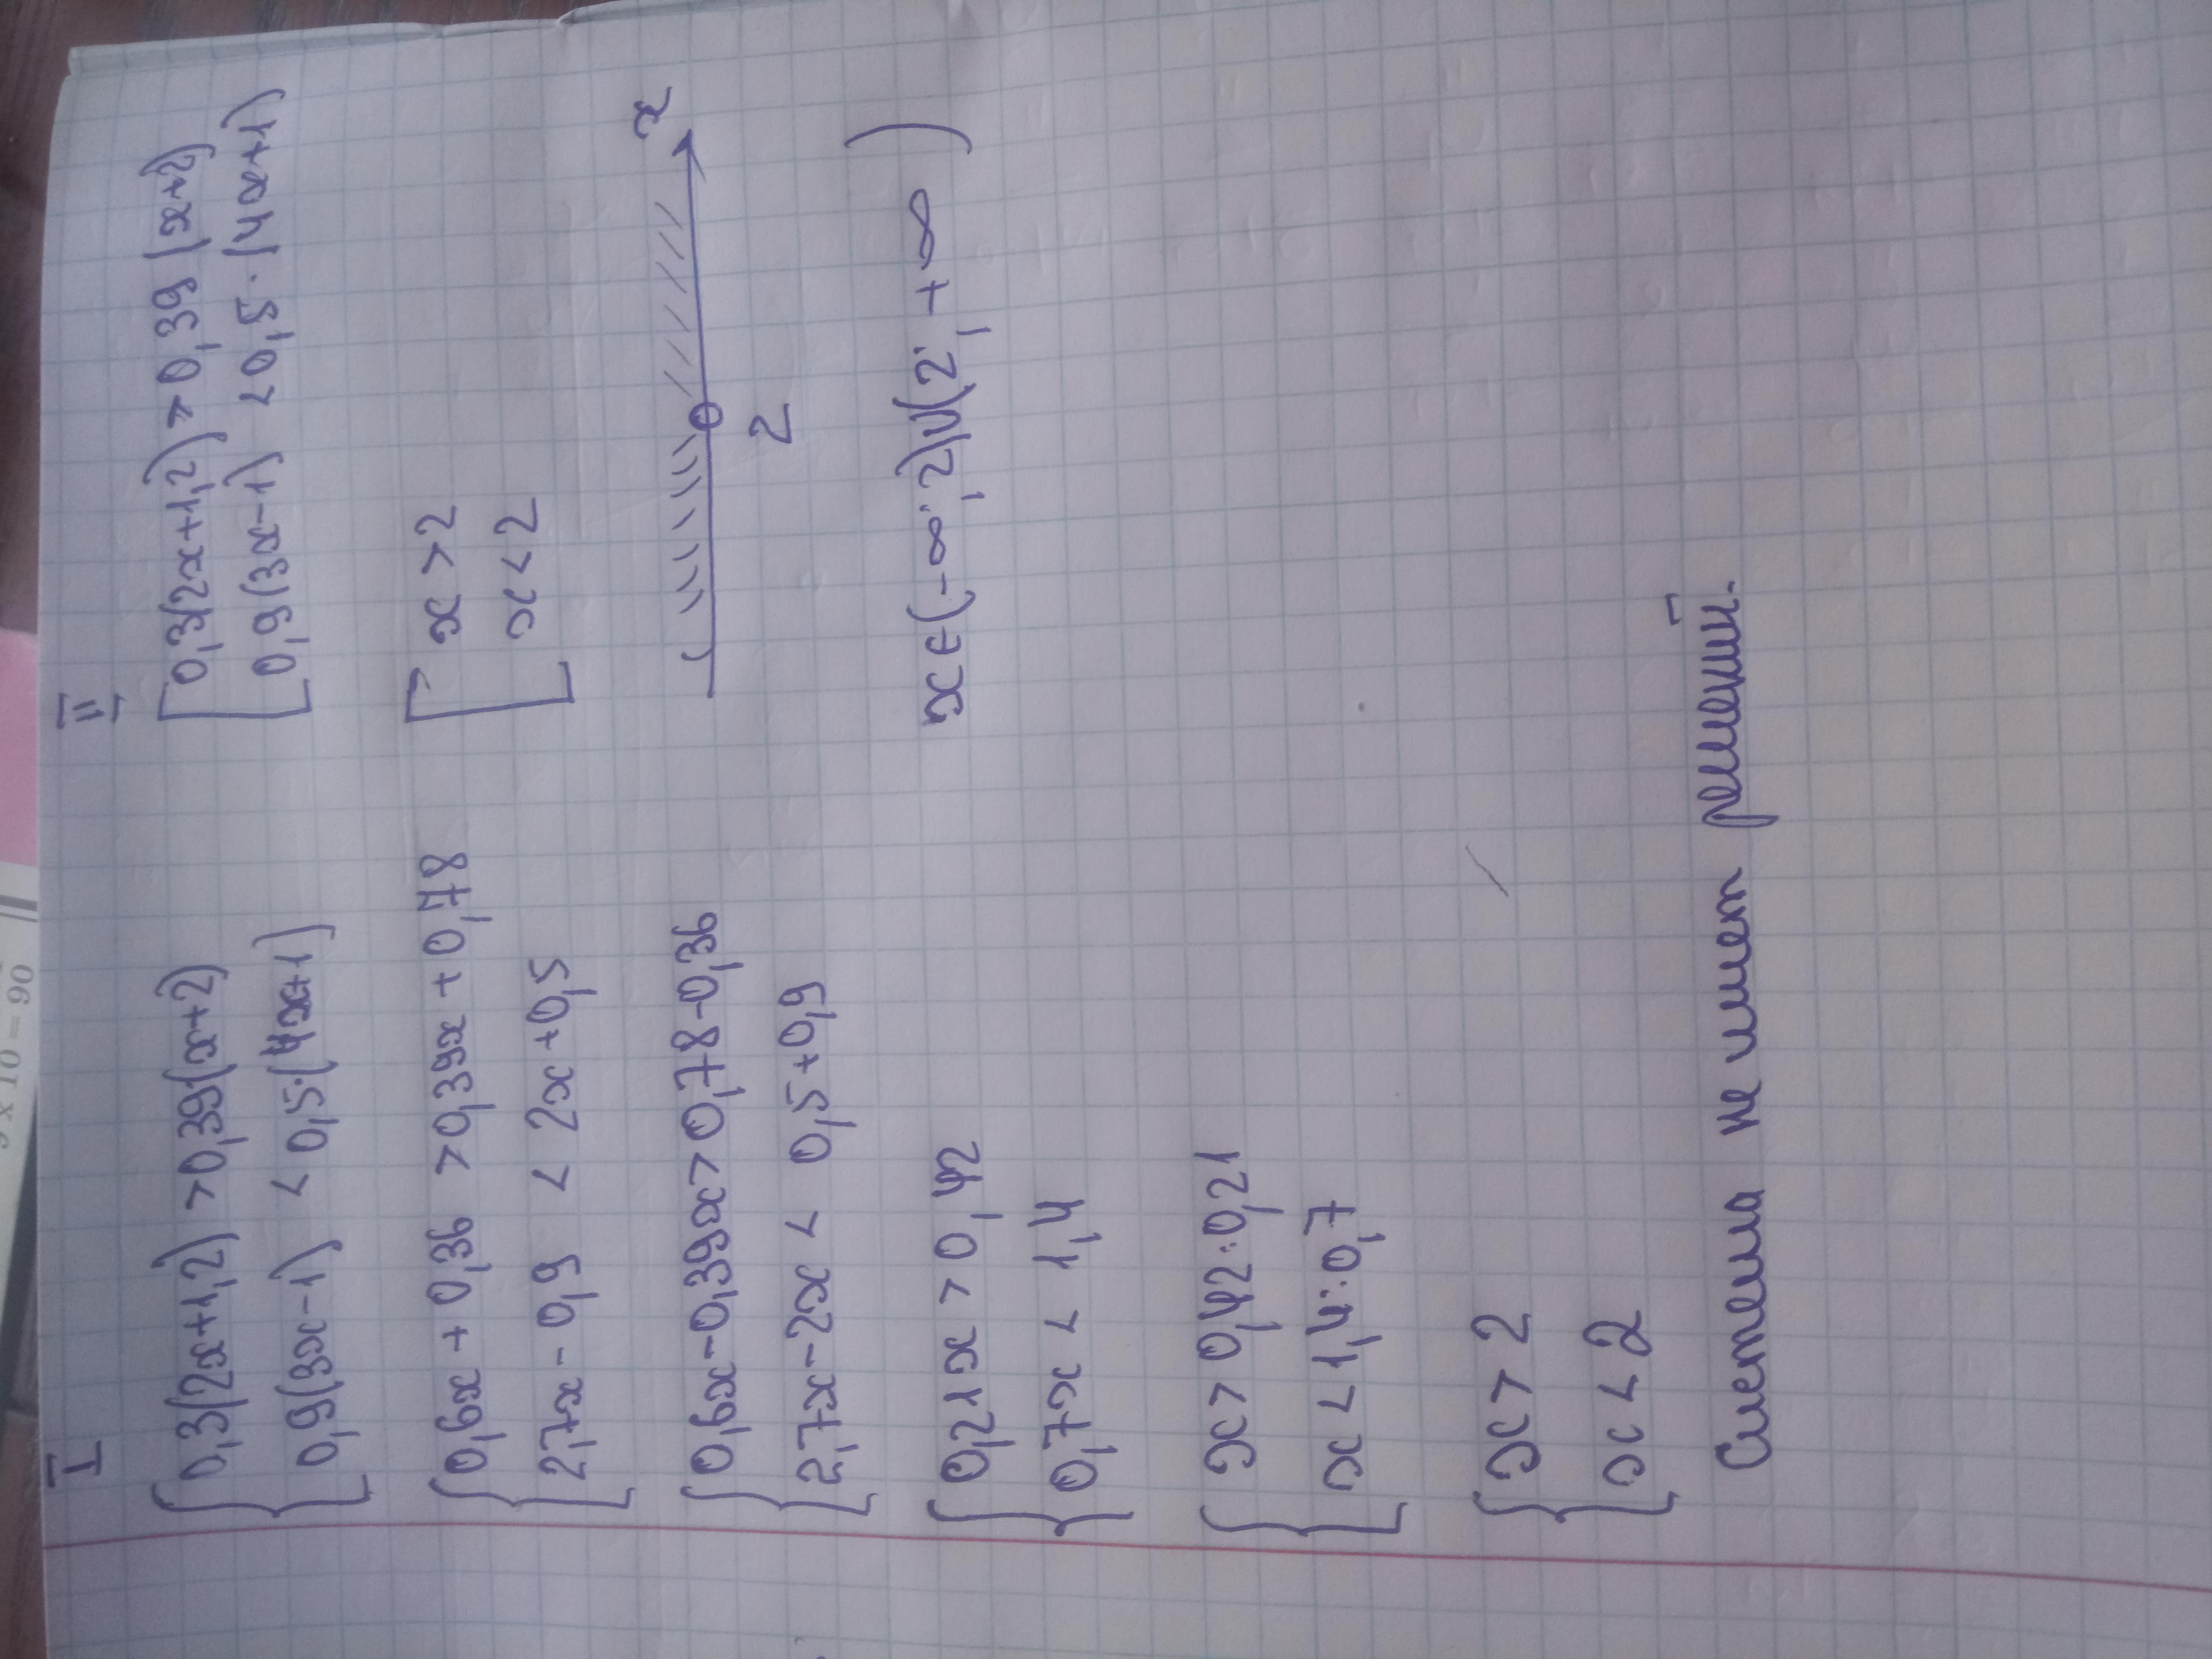 I
{0,3(2x+1,2) >0,39(x+2)
0,9(3x-1) < 0,5·(4x+1)
{0,6x+0,36 >0,39x+0,78
2,7x-0,9 < 2x+0,5
{0,6x-0,39x>0,78-0,36
2,7x-2x < 0,5+0,9
{0,21x>0,42
0,7x< 1,4
{x>0,42:0,21
x<1,4:0,7
{x>2
x<2
Система не имеет решений.
II
[0,3(2x+1,2)>0,39(x+2)
0,9(3x-1) <0,5·(4x+1)
[x>2
x<2
x
2
x∈(-∞;2)∪(2;+∞)
9 x 10 = 90